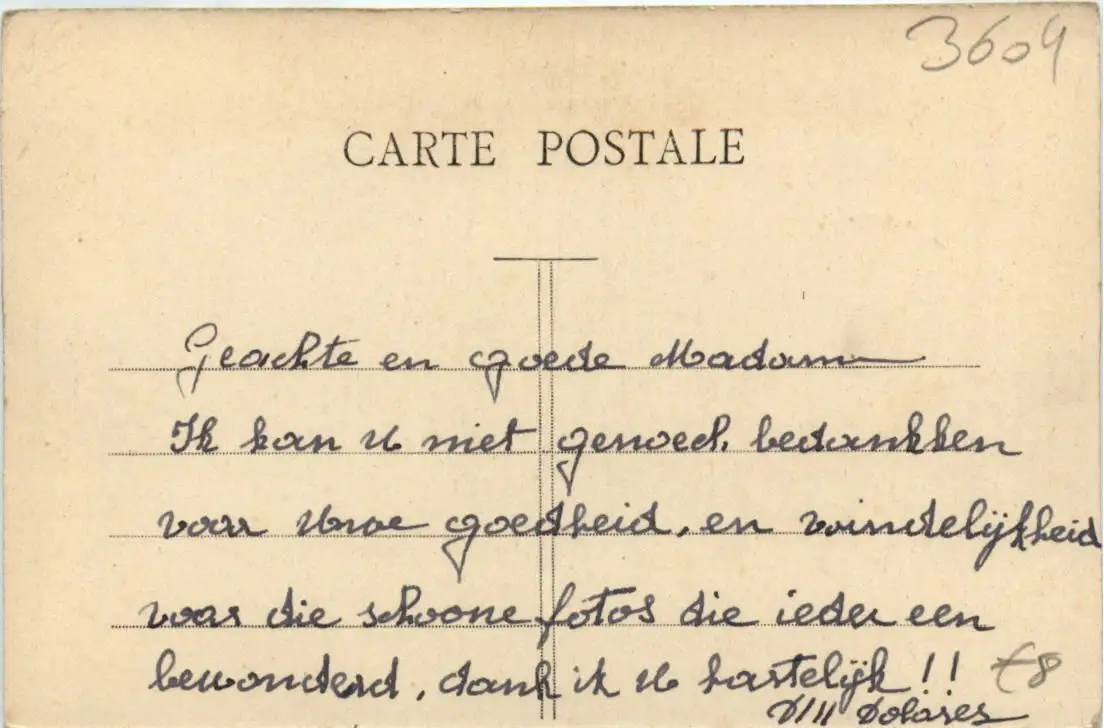 3604
CARTE POSTALE
Geachte en goede Madam
Ik kan U niet genoech bedankken
voor Uwe goedheid, en vrindelijkheid
voor die schoone fotos die ieder een
bewonderd, dank ik U hartelijk!!
€8
Dolores